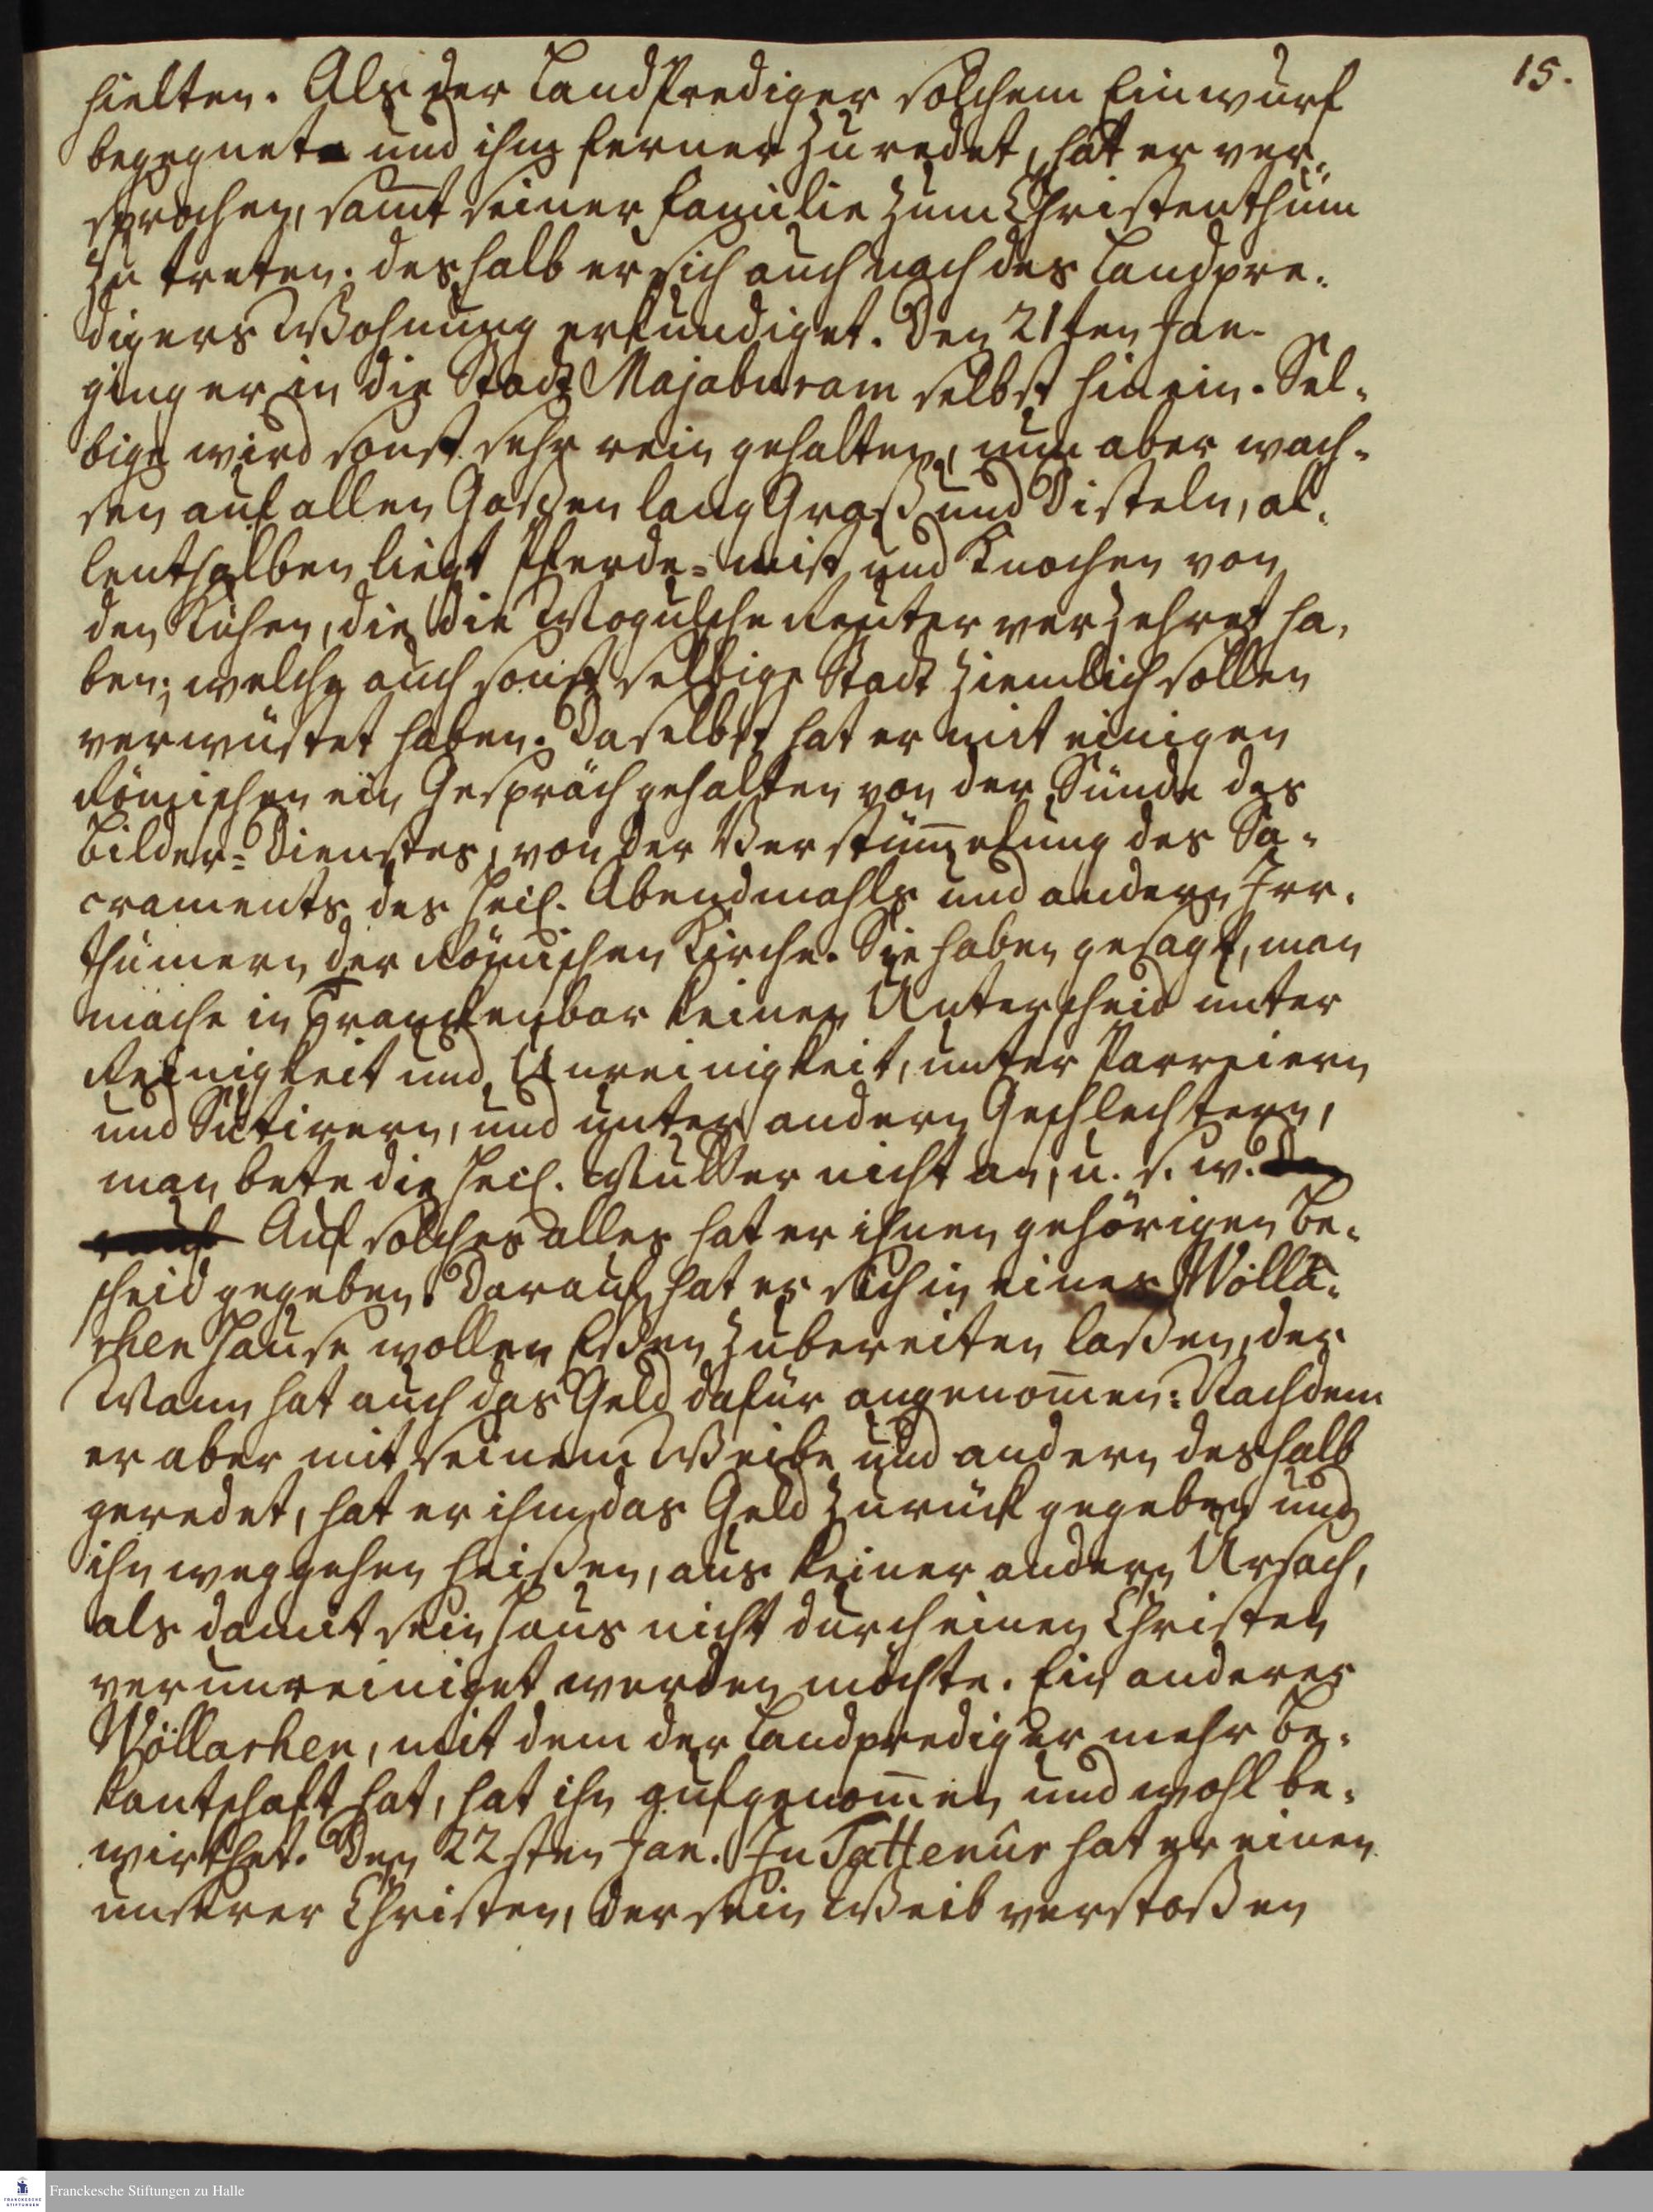 15.
hielten. Als der LandPrediger solchem Einwurf
begegnete und ihm ferner zuredet, hat er ver-
sprochen, samt seiner Familie zum Christenthum
zu treten; deshalb er sich auch nach des Landpre-
digers Wohnung erkundiget. Den 21sten Jan.
ging er in die Stadt Majaburam selbst hinein. Sel-
bige wird sonst sehr rein gehalten, nun aber wach-
sen auf allen Gaßen lang Graß und Disteln, al-
lenthalben liegt Pferde-mist und Knochen von
den Kühen, die die Mogulsche Reuter verzehret ha-
ben; welche auch sonst selbige Stadt ziemlich sollen
verwüstet haben. Daselbst hat er mit einigen
Römischen ein Gespräch gehalten von der Sünde des
Bilder-Dienstes, von der Verstümelung des Sa-
craments des heil. Abendmahls und andern Irr-
thümern der Römischen Kirche. Sie haben gesagt, man
mache in Tranckenbar keinen Unterscheid unter
Reinigkeit und Unreinigkeit, unter Parreiern
und Sutirern, und unter andern Geschlechtern,
man bete die heil. Mutter nicht an, u. s. w. Da
rauf Auf solches alles hat er ihnen gehörigen Be-
scheid gegeben. Darauf hat er sich in eines Wölla-
rhen Hause wollen Eßen zubereiten laßen, der
Mann hat auch das Geld dafür angenomen: Nachdem
er aber mit seinem Weibe und andern deshalb
geredet, hat er ihm das Geld zurück gegeben und
ihn weggehen heißen, aus keiner andern Ursach,
als damit sein Haus nicht durch einen Christen
verunreiniget werden möchte. Ein anderer
Wöllarhen, mit dem der Landprediger mehr Be-
kantschaft hat, hat ihn aufgenomen und wohl be-
wirthet. Den 22sten Jan. In Tattenûr hat er einen
unserer Christen, der sein Weib verstoßen
Franckesche Stiftungen zu Halle
FRANCKESCHE
STIFTUNGEN